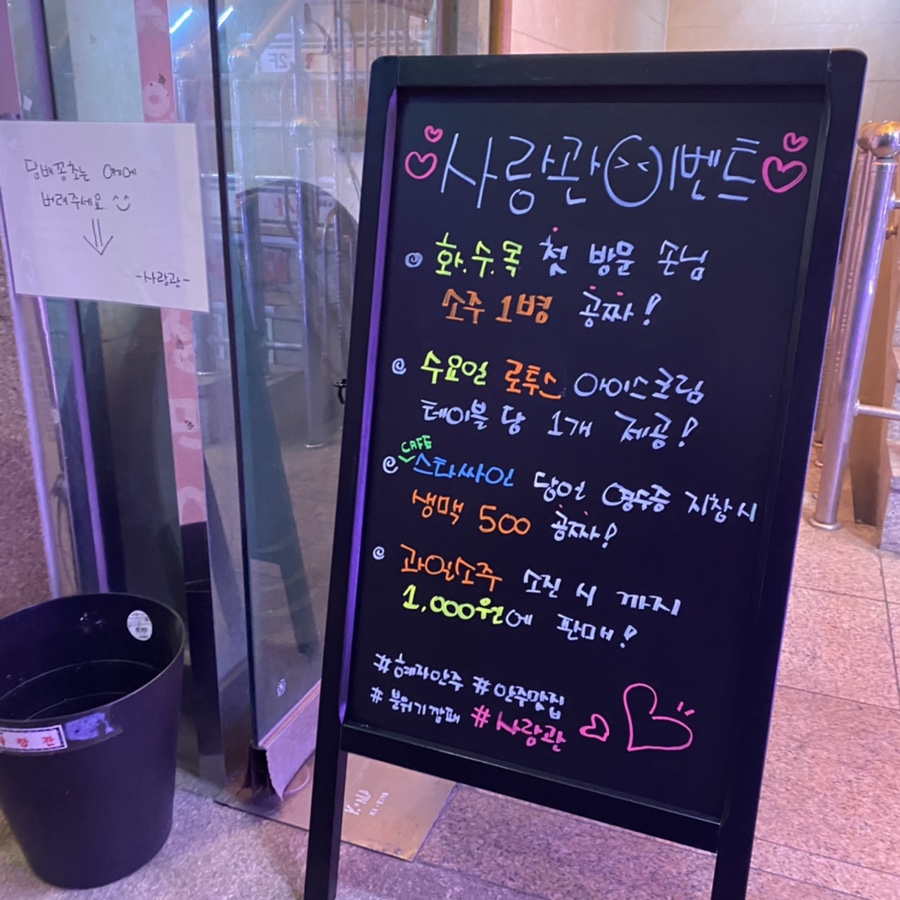 담배꽁초는 여기에
버려주세요
-사랑관-
사랑관 이벤트
화.수.목 첫 방문 손님
소주 1병 공짜!
수요일 로투스 아이스크림
테이블 당 1개 제공!
CAFE
스타싸인 당일 영수증 지참 시
생맥 500 공짜!
과일소주 소진 시 까지
1,000원에 판매!
#혜자안주 #안주맛집
#분위기깡패 #사랑관